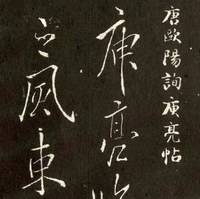 唐歐陽詢庾亮帖
庾亮
風東